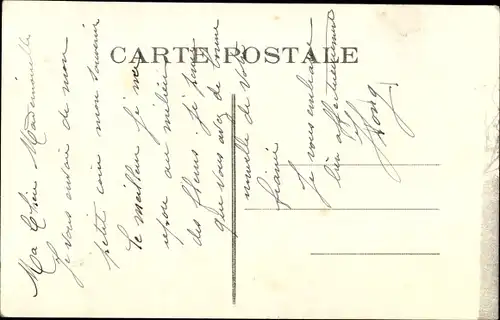 CARTE POSTALE
Ma Chère Mademoiselle
Je vous envoie de mon
petit coin mon souvenir
le meilleur je me
repose au milieu
des fleurs je pense
que vous avez de bonne
nouvelle de votre
fiancé
Je vous embrasse
bien affectueusement